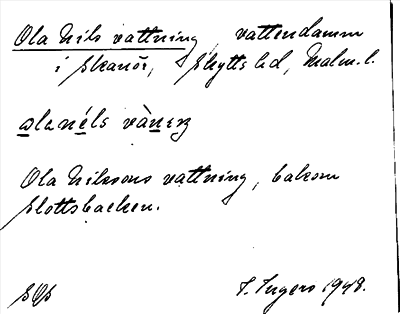 Ola Nils vattning, vattendamm
i Skanör, Skytts hd, Malm. l.
Ola Nilssons vattning, bakom
slottsbacken.
SOS I. Ingers 1948.